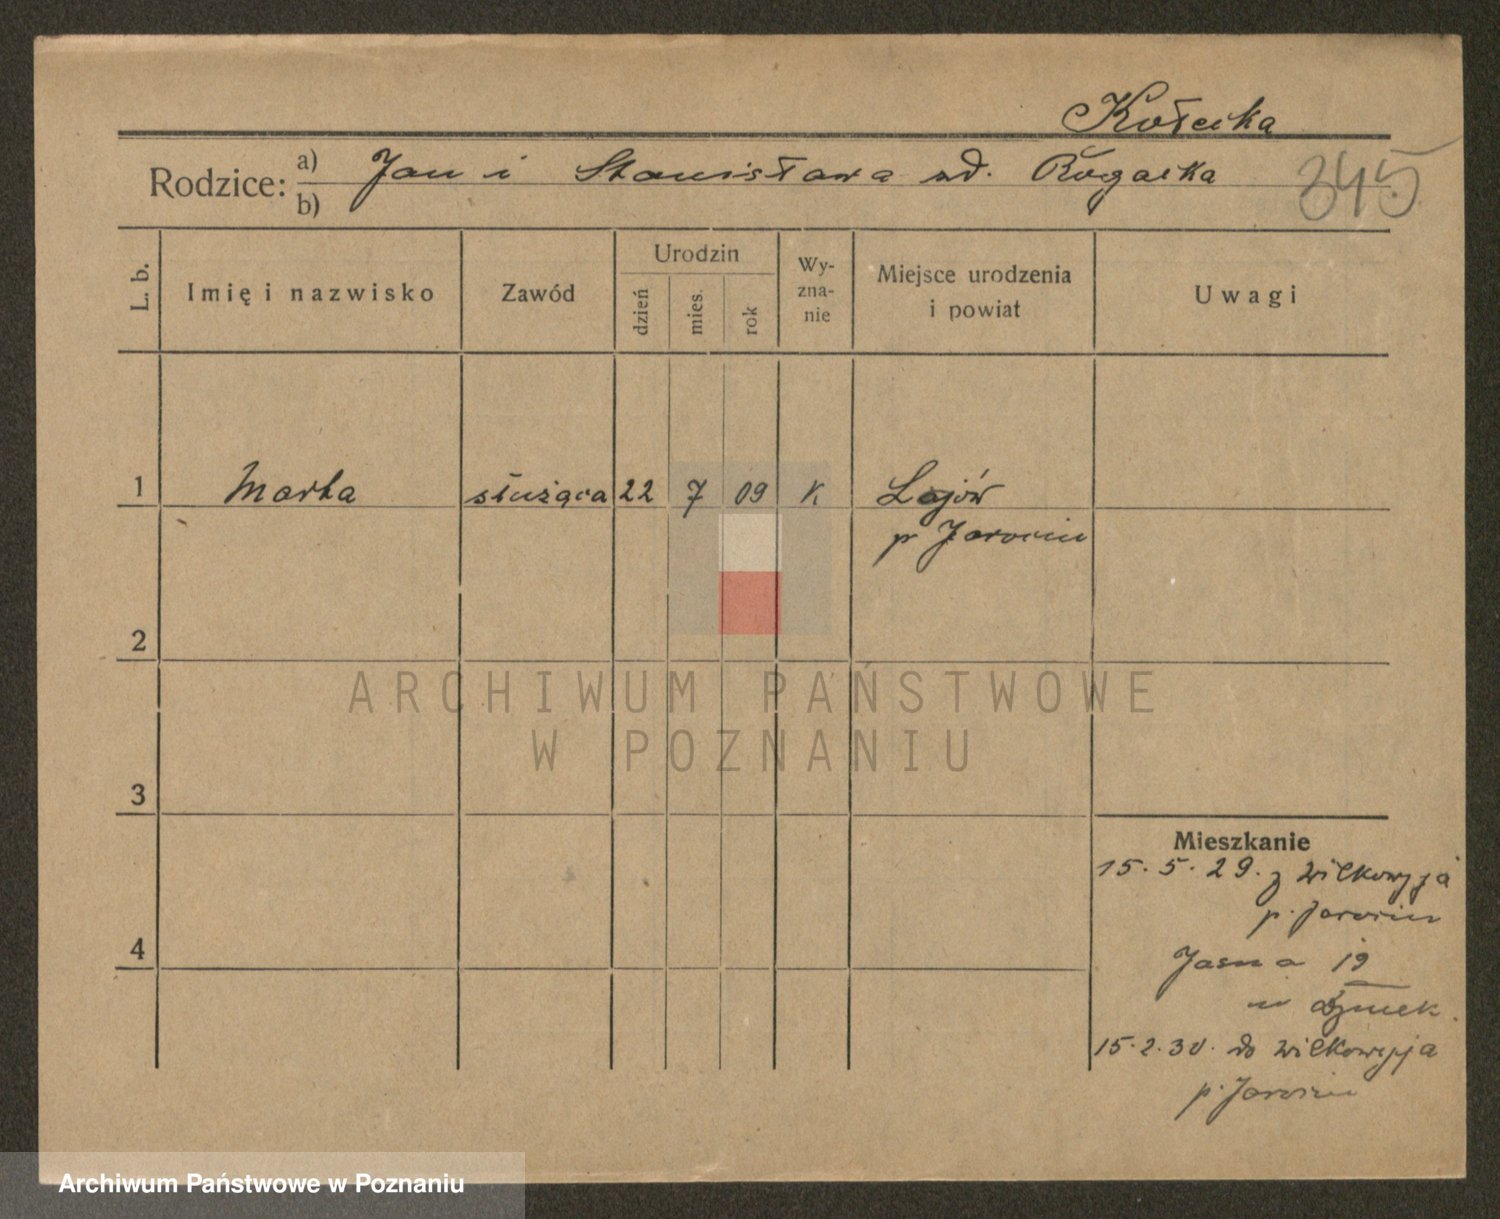 Kołecka
Rodzice: a) Jan i Stanisława zd. Rogacka
b)
345
L. b.
Imię i nazwisko
Zawód
Urodzin
dzień
mies.
rok
Wy-
zna-
nie
Miejsce urodzenia
i powiat
Uwagi
1 Marta służąca 22 7 09 K Lgów
p Jarocin
2
ARCHIWUM PAŃSTWOWE
W POZNANIU
3
Mieszkanie
15.5.29. z Wilkowyja
p. Jarocin
4
Jasna 19
u
15.2.30. do Wilkowyja
p. Jarocin
Archiwum Państwowe w Poznaniu